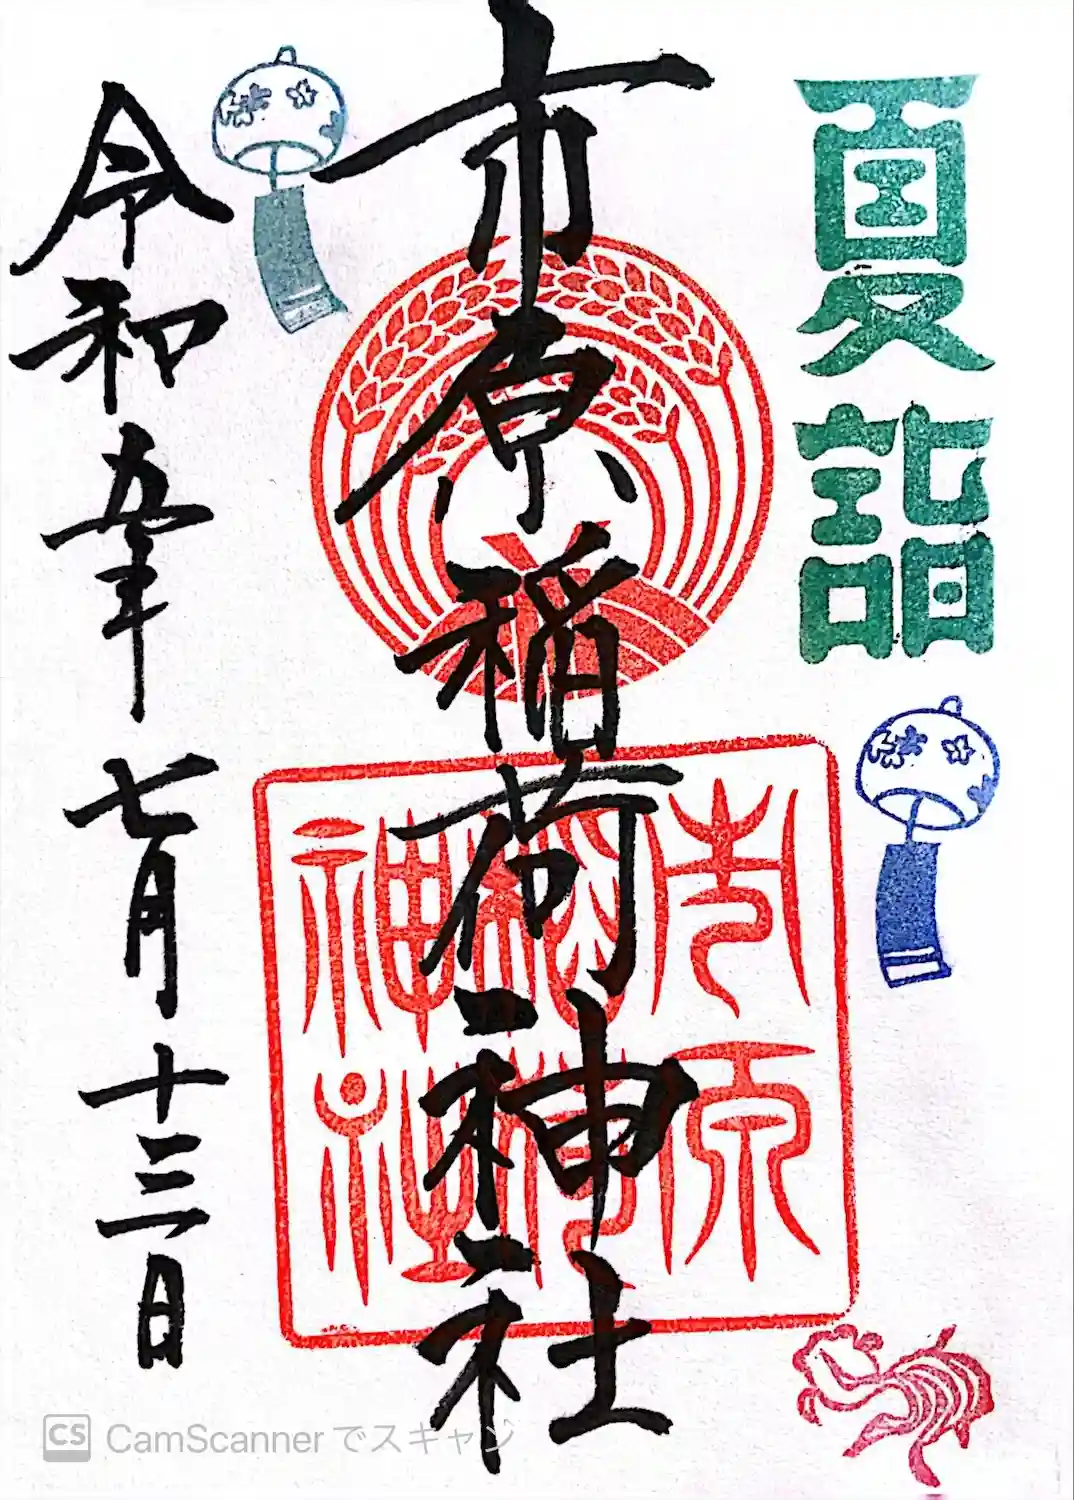 夏詣
市原稲荷神社
市原稲荷神社
令和五年七月十三日
CS CamScannerでスキャン